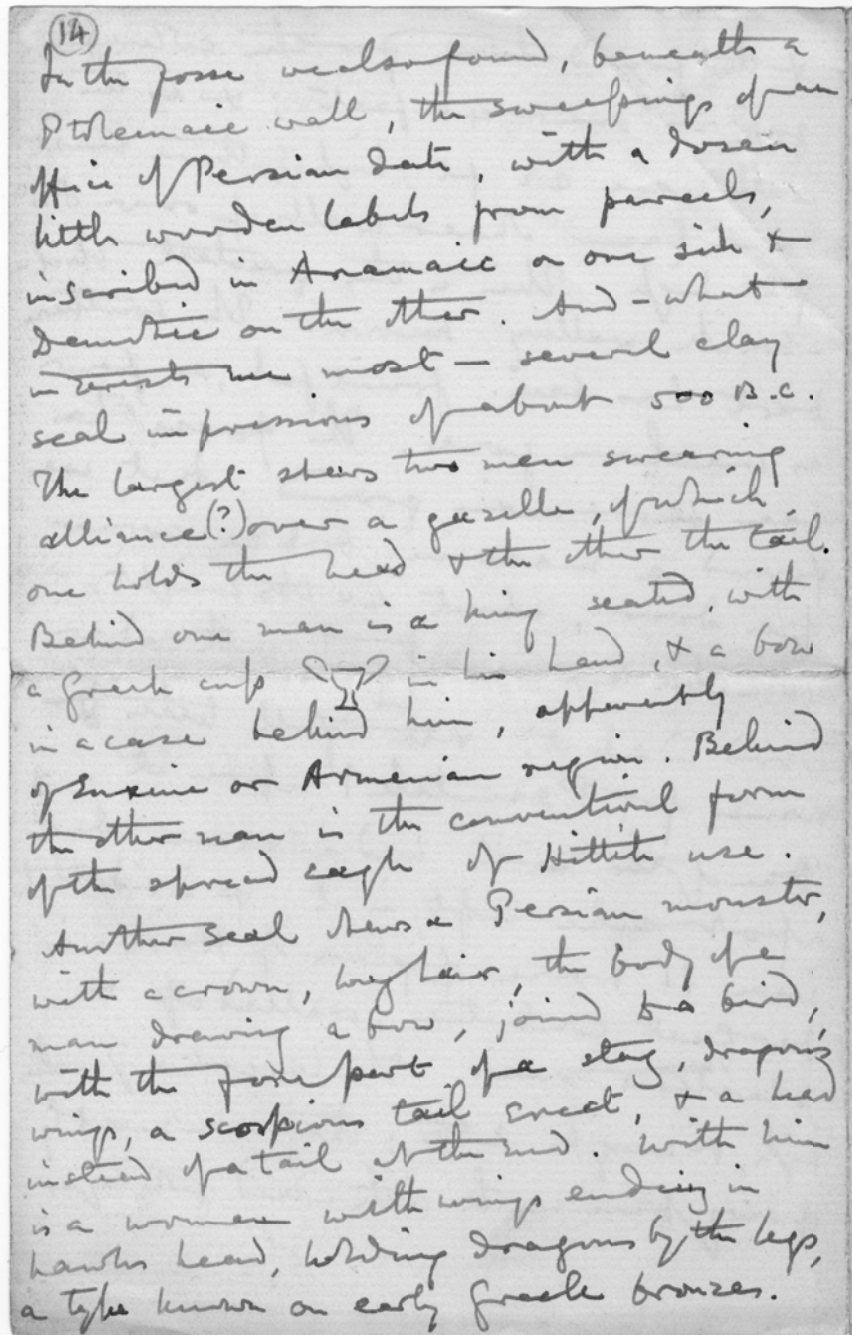 14
In the fosse we also found, beneath a
Ptolemaic wall, the sweepings of an
office of Persian date, with a dozen
little wooden labels from parcels,
inscribed in Aramaic on one side &
Demotic on the other. And – what
interests me most – several clay
seal impressions of about 500 B.C.
The largest shews two men swearing
alliance(?) over a gazelle, of which
one holds the head & the other the tail.
Behind one man is a king seated, with
a Greek cup in his hand, & a bow
in a case behind him, apparently
of Euxine or Armenian region. Behind
the other man is the conventional form
of the spread eagle of Hittite use.
Another seal shews a Persian monster,
with a crown, long hair, the body of a
man drawing a bow, joined to a bird,
with the fore part of a stag, dragon's
wings, a scorpions tail erect, & a head
instead of a tail at the end. With him
is a woman with wings ending in
hawks head, holding dragons by the legs,
a type known on early Greek bronzes.